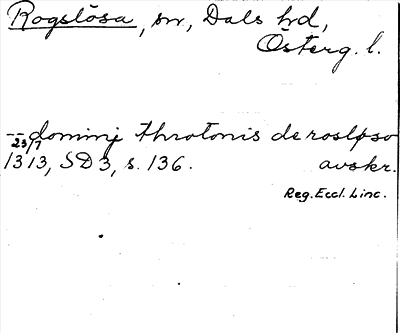 Rogslösa, sn, Dals hd,
Österg. l.
-- dominj throtonis de rosløso
23/7 1313, SD 3, s. 136. avskr.
Reg. Eccl. Linc.